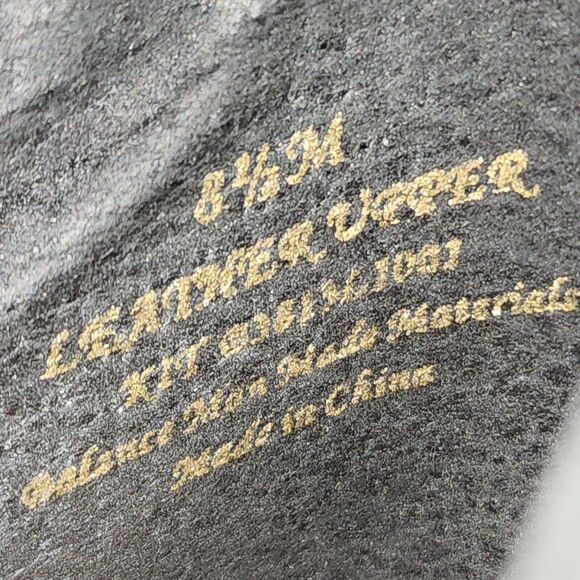 8½ M
LEATHER UPPER
KIT
Balance Man Made Materials
Made in China